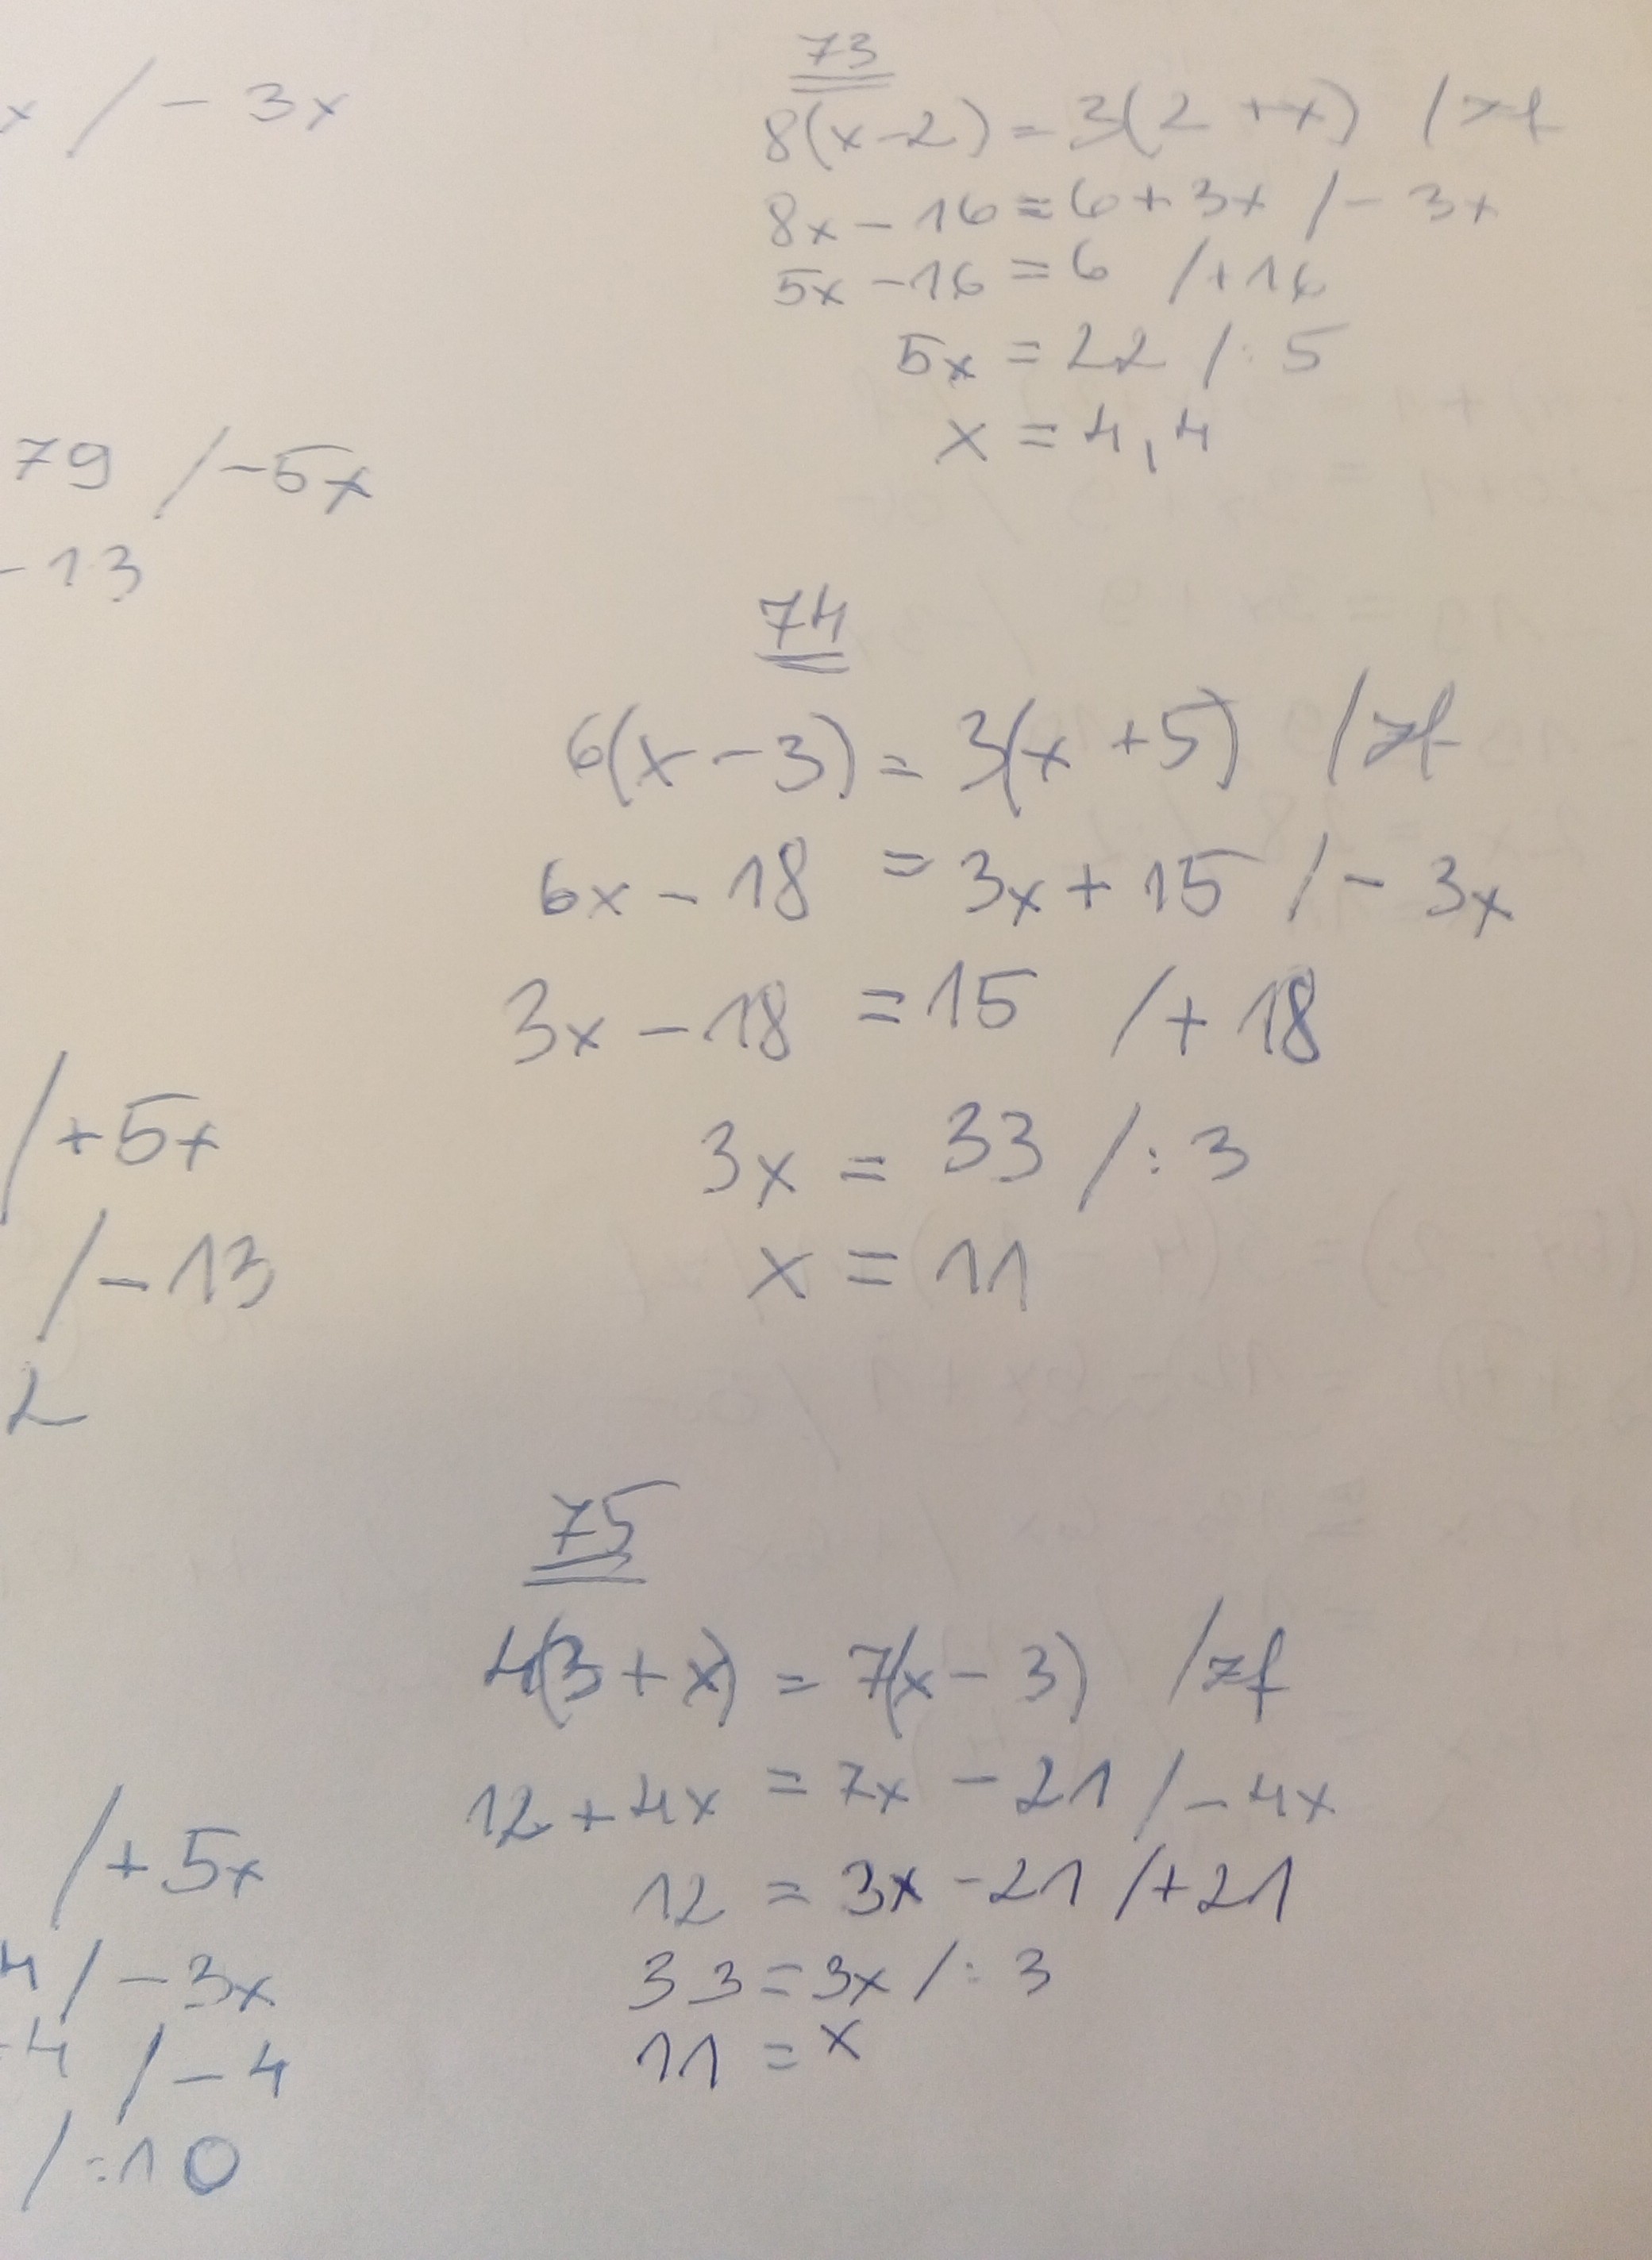 x / - 3x
79 / - 5x
- 13
/ + 5x
/ - 13
2
/ + 5x
4 / - 3x
-4 / - 4
/ :10
73
8(x-2) = 3(2 + x) / zf
8x - 16 = 6 + 3x / - 3x
5x - 16 = 6 / + 16
5x = 22 / : 5
x = 4,4
74
6(x - 3) = 3(x + 5) / zf
6x - 18 = 3x + 15 / - 3x
3x - 18 = 15 / + 18
3x = 33 / : 3
x = 11
75
4(3 + x) = 7(x - 3) / zf
12 + 4x = 7x - 21 / - 4x
12 = 3x - 21 / + 21
33 = 3x / : 3
11 = x